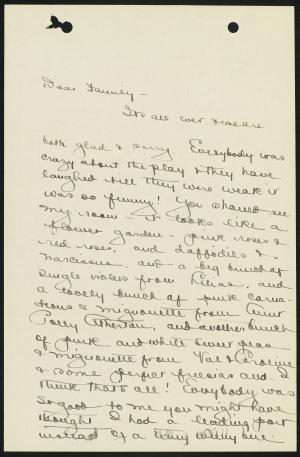 Dear Family -
It's all over & we are
both glad & sorry. Everybody was
crazy about the play & they have
laughed till they were weak it
was so funny! You should see
my room - it looks like a
flower garden - pink roses &
red roses, and daffodils &
narcissus and a big bunch of
single violets from Lucia, and
a lovely bunch of pink carna-
tions & mignonette from Aunt
Polly, and another bunch
of pink and white sweet peas
& mignonette from Val & Caroline
& some perfect freesias and - I
think that's all! Everybody was
so good to me you might have
thought I had a leading part
instead of a teeny weeny one.